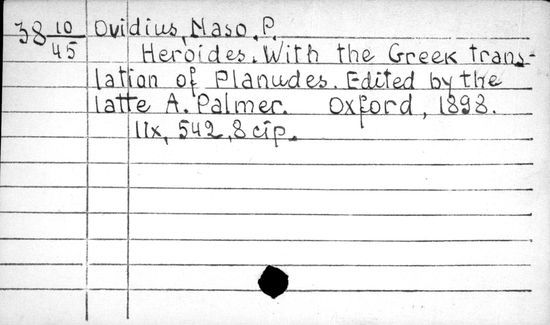 38 10/45 Ovidius, Naso, P.
Heroides. With the Greek trans-
lation of Planudes. Edited by the
latte A. Palmer. Oxford, 1898.
IIx, 542, 8 cip.